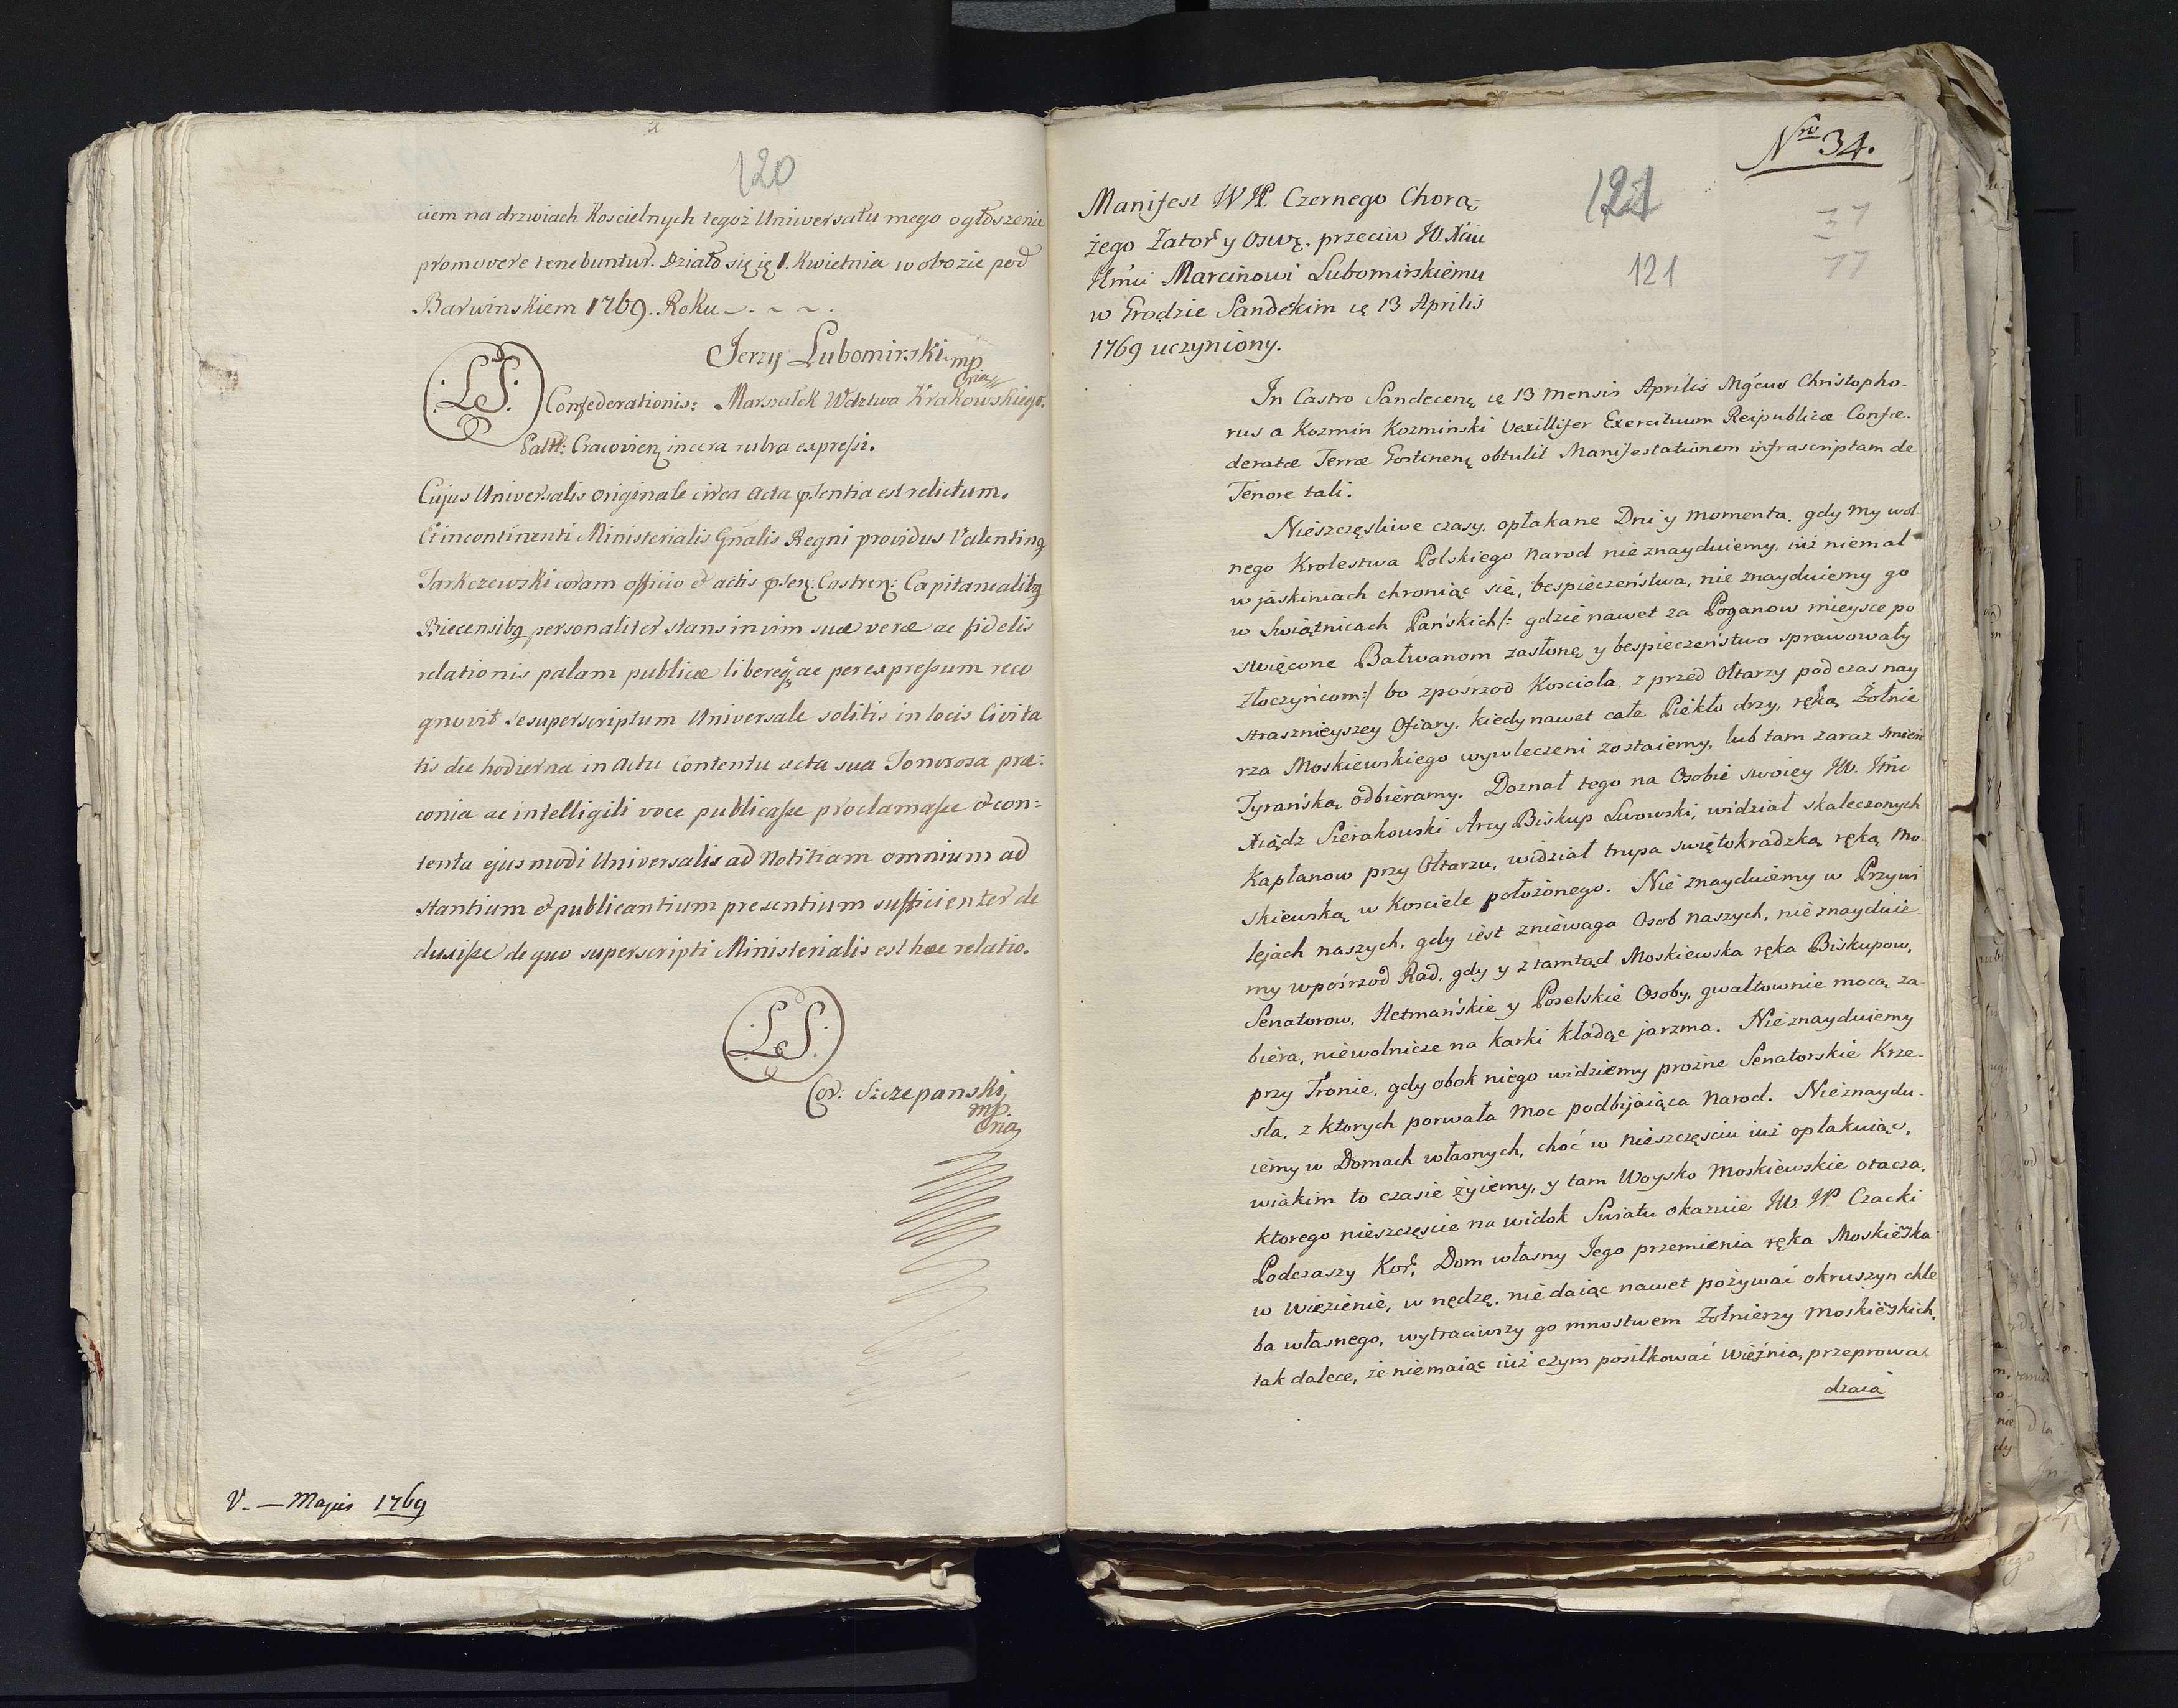 120
ciem na drzwiach Koscielnych tegoż Uniwersału mego ogłoszenia
promovere tenebuntur. Działo się ię 1. Kwietnia w obozie pod
Barwinskiem 1769. Roku
Jerzy Lubomirski mp
Oria
L.S. Confederationis: Marszałek Wdztwa Krakowskiego.
Palth: Cracovien in cera rubra expressi.
Cujus Universalis originale circa acta pսentia est relictum.
Et incontinenti Ministerialis Gnalis Regni providus Valentinq
Tarkczewski coram officio et actis Castren: Capitanealibq
Biecensibq personaliter stans in vim suæ veræ ac fidelis
relationis palam publicæ libereq ac per expressum reco
gnovit se superscriptum Universale solitis in locis Civita
tis die hodierna in actu contentu acta sua Sonorosa præ:
conia ac intelligili voce publicasse proclamasse et con:
tenta ejusmodi Universalis ad Notitiam omnium ad
stantium et publicantium presentium sufficienter de
duxisse de quo superscripti Ministerialis est hæc relatio.
L.S.
Cor: Szczepanski
mp.
Oria
V. — Majus 1769
Nro 34.
121
37
77
121
Manifest W JP. Czernego Chorą-
żego Zator y Oswę. przeciw JO. Xciu
Jmci Marcinowi Lubomirskiemu
w Grodzie Sandekim ię 13 Aprilis
1769 uczyniony.
In Castro Sandecenę ię 13 mensis Aprilis Mgcus Christopho-
rus a Kozmin Kozminski Vexillifer Exercituum Reipublicæ Confæ-
deratæ Terræ Gostinenę obtulit Manifestationem infrascriptam de
Tenore tali.
Nieszczęsliwe czasy, opłakane Dni y momenta, gdy my wol-
nego Krolestwa Polskiego Narod nie znayduiemy, iuż niemal
w jaskiniach chroniąc się, bespieczeństwa, nie znayduiemy go
w Swiątnicach Pańskich /: gdzie nawet za Poganow mieysce po
swięcone Bałwanom zasłonę y bespieczeństwo sprawowały
złoczyńcom :/ bo zpośrzod Koscioła, z przed Ołtarzy podczas nay
straszniejszey Ofiary, kiedy nawet całe Piekło drzy, ręką Żołnie
rza Moskiewskiego wywleczeni zostaiemy, lub tam zaraz smierć
Tyrańską odbieramy. Doznał tego na Osobie swoiey JW. Jmc
Xiądz Sierakowski Arcy Biskup Lwowski, widział skaleczonych
Kapłanow przy Ołtarzu, widział trupa swiętokradzką ręką Mo-
skiewską w Kosciele położonego. Nie znayduiemy w Przywi
lejach naszych, gdy iest zniewaga Osob naszych, nie znayduie-
my wpośrzod Rad, gdy y z tamtąd Moskiewska ręka Biskupow,
Senatorow, Hetmańskie y Poselskie Osoby, gwałtownie mocą za-
biera, niewolnicze na karki kładąc jarzma. Nie znayduiemy
przy Tronie, gdy obok niego widziemy prozne Senatorskie Krze-
sła, z ktorych porwała moc podbijaiąca Narod. Nie znaydu-
iemy w Domach własnych, choć w nieszczęsciu iuż opłakuiąc,
wiakim to czasie żyiemy, y tam Woysko Moskiewskie otacza,
ktorego nieszczęscie na widok Swiatu okazuie JW JP. Czacki
Podczaszy Kor, Dom własny Jego przemienia ręka Moskieska
w Więzienie, w nędzę, nie daiąc nawet pożywać okruszyn chle
ba własnego, wytraciwszy go mnostwem Żołnierzy Moskieskich,
tak dalece, że niemaiąc iuż czym posiłkować Więźnia, przeprowa-
dzaią